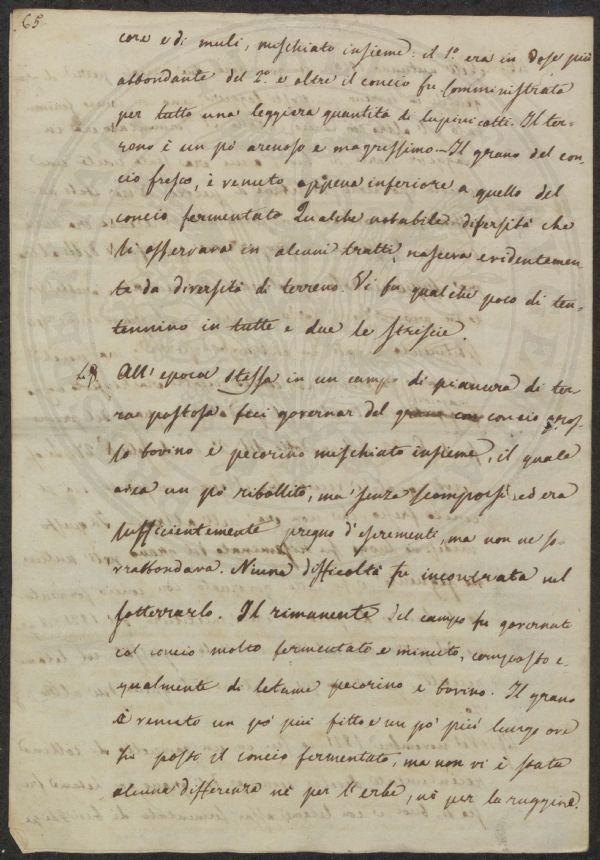 65
core e di muli, mischiato insieme: il 1º era in dose più
abbondante del 2º e oltre il concio fu somministrata
per tutto una leggiera quantità di lupini cotti. Il ter-
reno è un pò arenoso e magrissimo. Il grano del con-
cio fresco, è venuto appena inferiore a quello del
concio fermentato Qualche notabile diversità che
si osservava in alcuni tratti, nasceva evidentemen-
te da diversità di terreno. Vi fu qualche poco di ten-
tennino in tutte e due le striscie.
All' epoca stessa in un campo di pianura di ter-
ra pastosa feci governar del concio gros-
so bovino e pecorino mischiato insieme, il quale
avea un pò ribollito, ma senza scomporsi, ed era
sufficientemente pregno d'escrementi, ma non ne so-
vrabbondava. Niuna difficoltà fu incontrata nel
sotterrarlo. Il rimanente del campo fu governato
col concio molto fermentato e minuto, composto e-
gualmente di letame pecorino e bovino. Il grano
è venuto un pò più fitto e un pò più lungo ove
fu posto il concio fermentato, ma non vi è stata
alcuna differenza nè per l'erbe, nè per la ruggine.